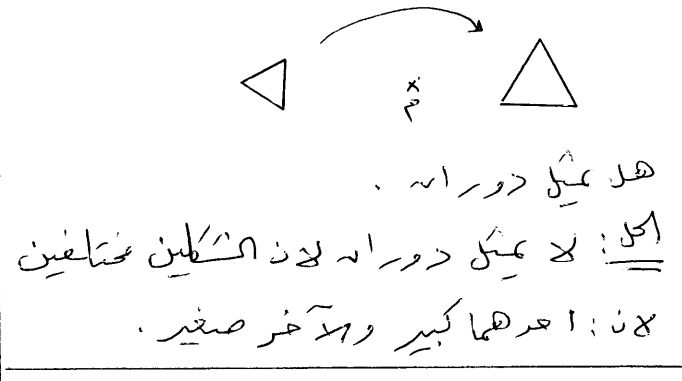 ×
م
هل يمثل دوران .
الحل : لا يمثل دوران لان الشكلين مختلفين
لان : احدهما كبير والآخر صغير .